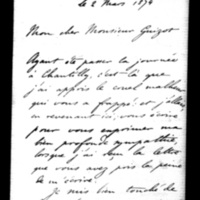 le 2 Mars 1874
Mon cher Monsieur Guizot
Ayant été passer la journée
à Chantilly, c'est là que
j'ai appris le cruel malheur
qui vous a frappé et j'allais,
en revenant ici, vous écrire
pour vous exprimer ma
bien profonde sympathie
lorsque j'ai reçu la lettre
que vous avez pris la peine
de m'écrire.
Je suis bien touché de